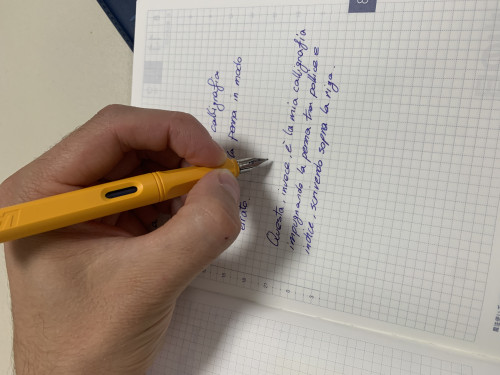 calligrafia
penna in modo
Questa, invece, è la mia calligrafia
impugnando la penna tra pollice e
indice, scrivendo sopra la riga.